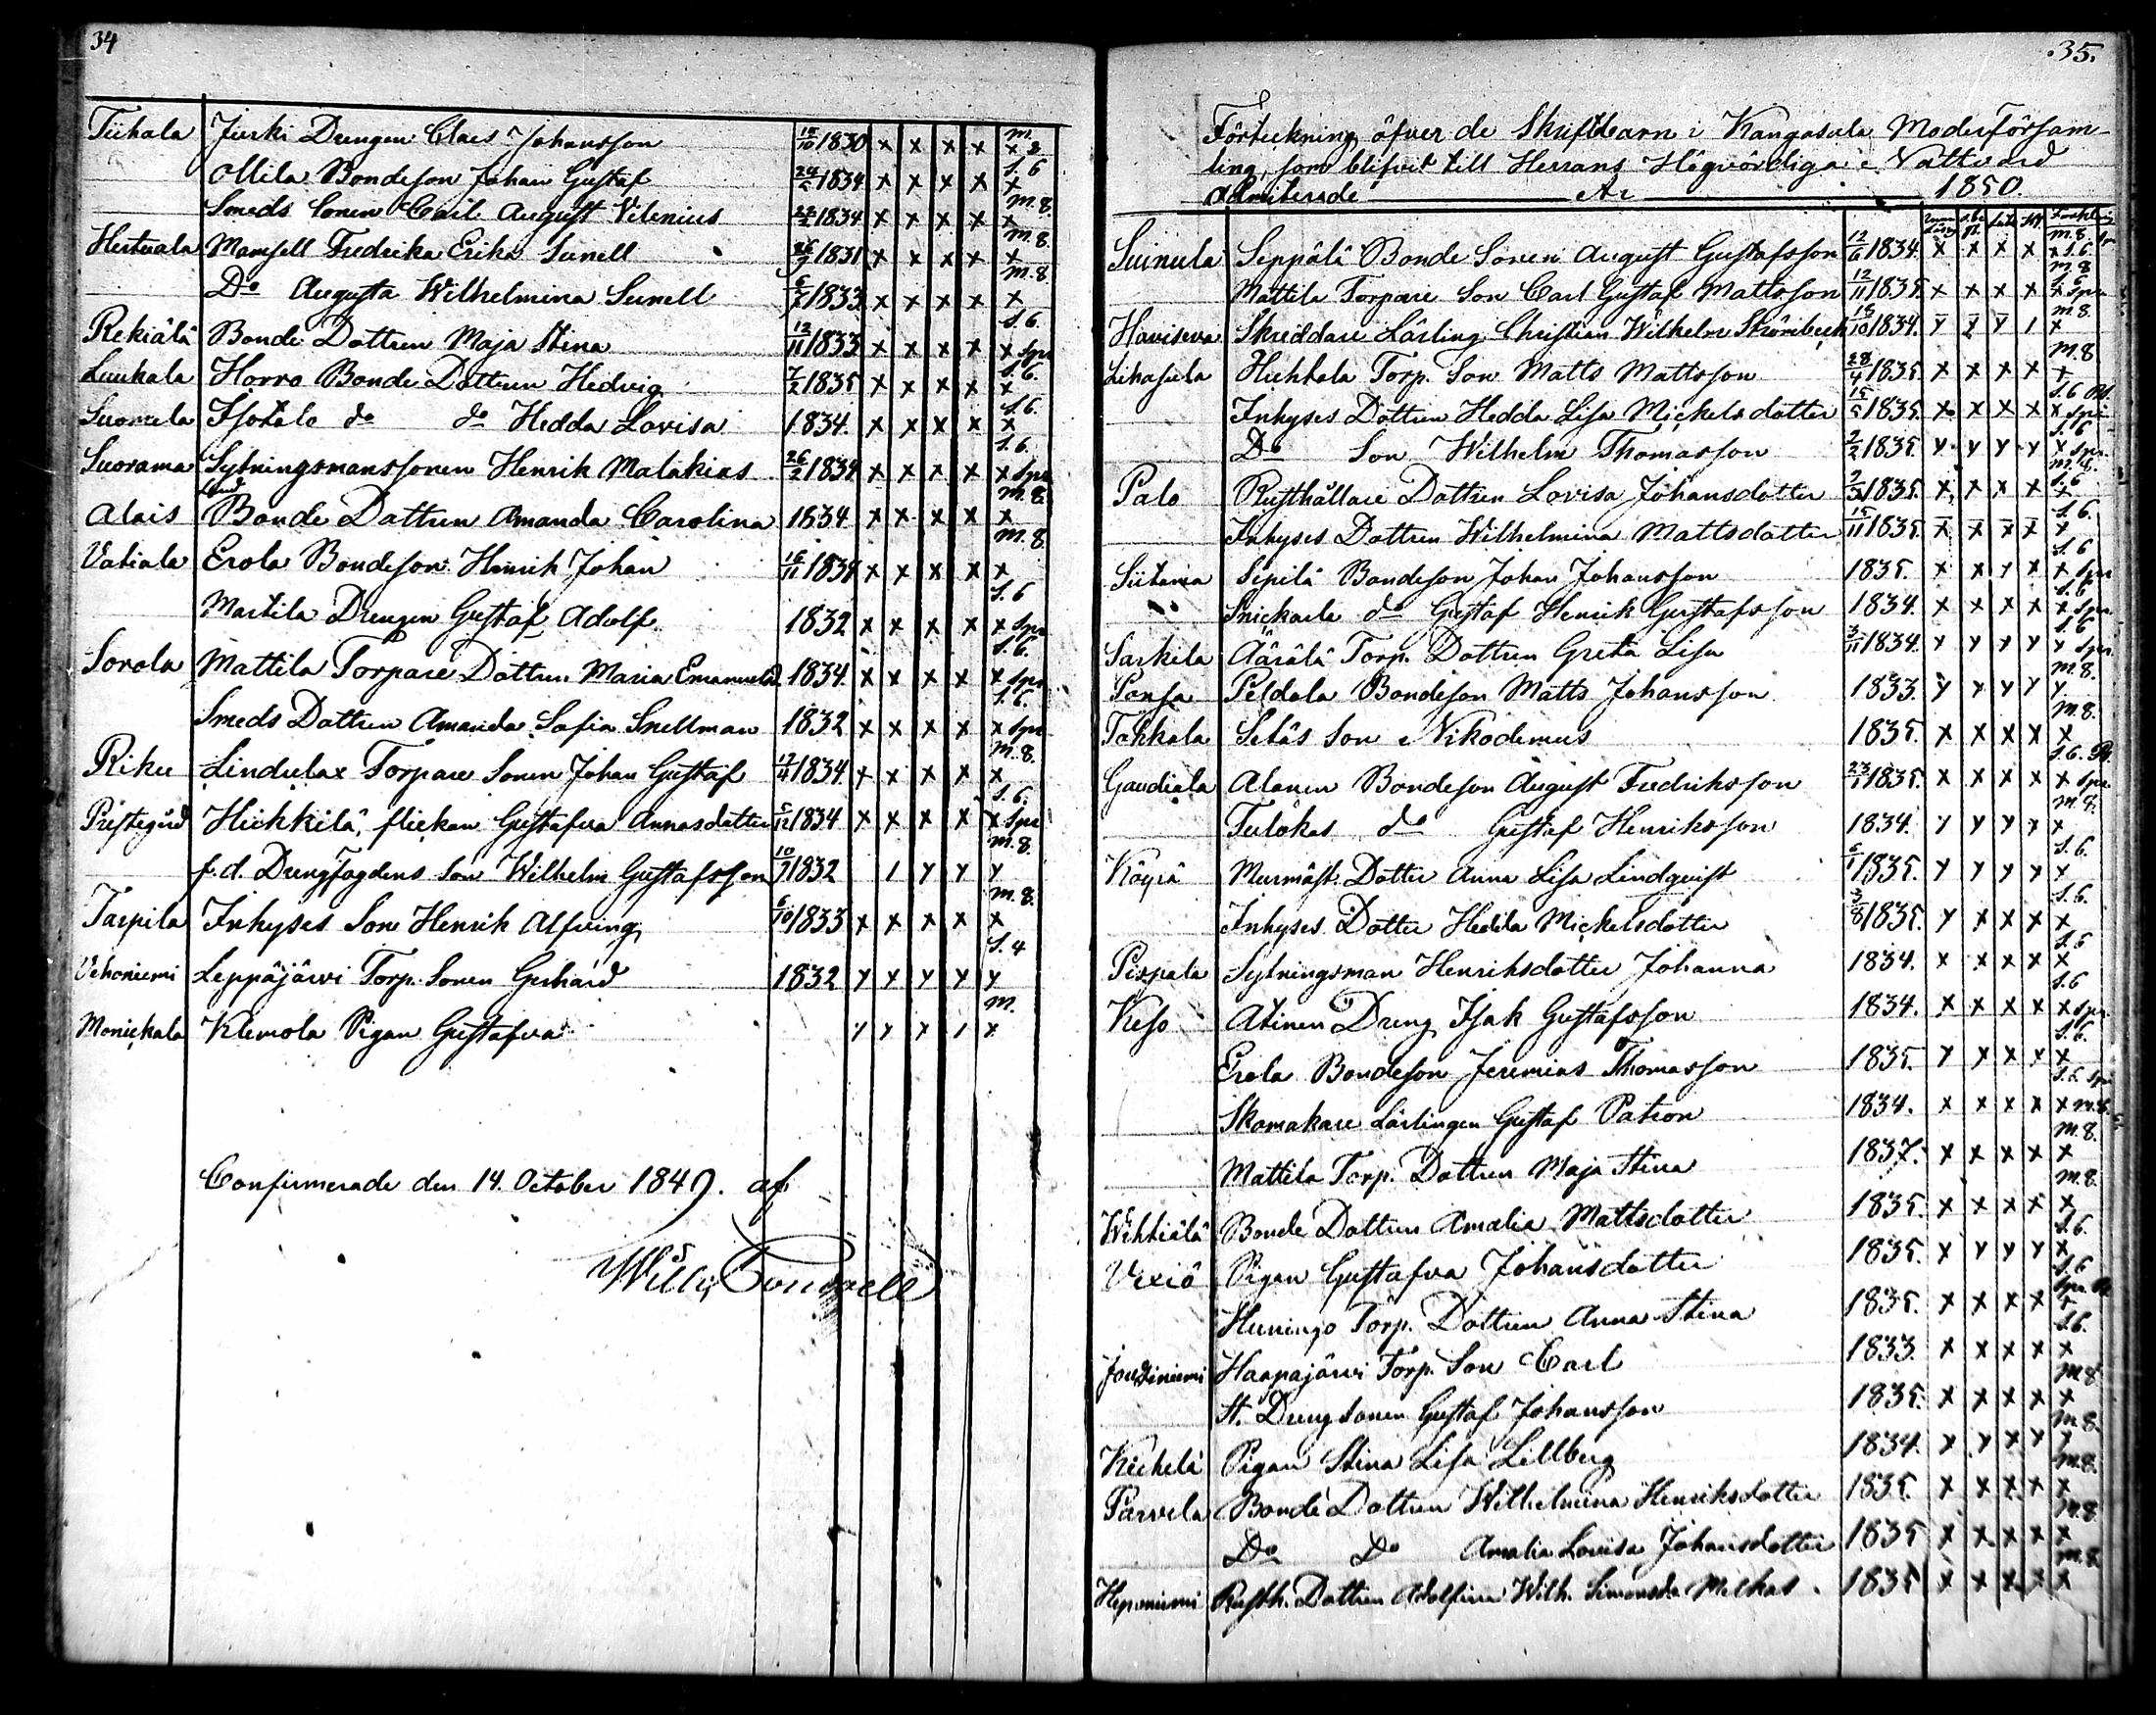 34
Tiihala Jutki Drengen Claes Johansson 18/10 1830 x x x x x m. 2
Ollila Bondeson Johan Gustaf 24/5 1834 x x x x x s. 6
Smeds Sonen Carl August Vilenius 22/2 1834 x x x x x m. 8.
Hertuala Mamsell Fredrika Erika Sunell 26/9 1831 x x x x x m. 8.
Do Augusta Wilhelmina Sunell 6/7 1833 x x x x x m. 8
Rekiälä Bonde Dottren Maja Stina 12/11 1833 x x x x x spr s. 6.
Liuhala Horro Bonde Dottren Hedvig 7/2 1835 x x x x x s. 6.
Suomela Isotalo do do Hedda Lovisa 1834. x x x x x s. 6.
Suorama Sytningsmanssonen Henrik Malakias 26/2 1834 x x x x x spr s. 6.
Alais Bonde Dottren Amanda Carolina 1834 x x x x x m. 8.
Vatiala Erola Bondeson Henrik Johan 16/11 1834 x x x x x m. 8.
Martila Drengen Gustaf Adolf 1832 x x x x x spr s. 6
Sorola Mattila Torpare Dottren Maria Emanuelsd. 1834. x x x x x spr s. 6.
Smeds Dottren Amanda Sofia Snellman 1832 x x x x x spr s. 6.
Riku Lindulax Torpare Sonen Johan Gustaf 17/4 1834. x x x x x m. 8.
Prestegård Hiekkilä, flickan Gustafva Annasdotter 5/12 1834 x x x x x spr s. 6.
f. d. Drengfogdens Son Wilhelm Gustafsson 10/7 1832 1 y y y m. 8.
Tarpila Inhyses Son Henrik Alfving 6/10 1833 x x x x x m. 8.
Vehoniemi Leppäjärvi Torp. Sonen Gerhard 1832 y x y y y s. 4
Monickala Klemola Pigan Gustafva y y x 1 x m.
Confirmerade den 14. October 1849. af
35.
Förteckning öfver de Skriftbarn i Kangasala Moderförsam-
ling, som blifvit till Herrans Högvördiga Nattvard
admitterade År 1850.
Suinula Seppälä Bonde Sonen August Gustafsson 12/6 1834. x x x x x s. 6. m. 8.
Mattila Torpare Son Carl Gustaf Mattsson 12/11 1835. x x x x x spr m. 8
Haviseva Skreddare Lärling Christian Wilhelm Strömbeck 18/10 1834. y x y 1 x m. 8.
Lihasula Huhtala Torp. Son Matts Mattsson 28/4 1835. x x x x x m. 8
Inhyses Dottren Hedda Lisa Mickelsdotter 15/5 1835. x x x x x spr s. 6
Do Son Wilhelm Thomasson 2/2 1835. y y y y y spr. s. 6
Palo Rusthållare Dottren Lovisa Johansdotter 2/3 1835. x x x x x m. 8.
Inhyses Dottren Wilhelmina Mattsdotter 15/11 1835. x x x x x s. 6.
Siitama Sipilä Bondeson Johan Johansson 1835. x x y x x spr s. 6
Snickarla do Gustaf Henrik Gustafsson 1834. x x x x x spr. s. 6
Sarkila Äärälä Torp. Dottren Greta Lisa 3/11 1834. y y y y y spr. s. 6
Ponsa Peldola Bondeson Matts Johansson 1833. y y y y y m. 8.
Tohkala Setäs Son Nikodemus 1835. x x x x x m. 8.
Gaudiala Alanen Bondeson August Fredriksson 23/1 1835. x x x x x spr s. 6.
Tulokas do Gustaf Henriksson 1834. y y y y x m. 8.
Köyrä Murmäst. Dotter Anna Lisa Lindqvist 6/1 1835. y y y y x s. 6.
Inhyses Dotter Hedda Mickelsdotter 3/8 1835. y x x x x s. 6.
Pispala Sytningsman Henriksdotter Johanna 1834. x x x x x s. 6
Keso Atinen Dreng Isak Gustafsson 1834. x x x x x spr. s. 6
Erola Bondeson Jeremias Thomasson 1835. y x x x x s. 6.
Skomakare Lärlingen Gustaf Patron 1834. x x x x x m. 8.
Mattila Torp. Dottren Maja Stina 1837. x x x x x m. 8.
Wihtiälä Bonde Dottren Amalia Mattsdotter 1835. x x x x x m. 8.
Vexiö Pigan Gustafva Johansdotter 1835. x y y y x s. 6.
Huningo Torp. Dottren Anna Stina 1835. x x x x x s. 6
Haapajärvi Torp. Son Carl 1833. x x x x x s. 6.
St. Dreng Sonen Gustaf Johansson 1835. x x x x x m. 8
Kuhelä Pigan Stina Lisa Lillberg 1834. x y x y y m. 8.
Parvela Bonde Dottren Wilhelmina Henriksdotter 1835. x x x x x m. 8.
Do Do Amalia Lovisa Johansdotter 1835 x x x x x m. 8.
Heponiemi Rusth. Dottren Adolfina Wilh. Simonsdr 1835 x x x x x m. 8